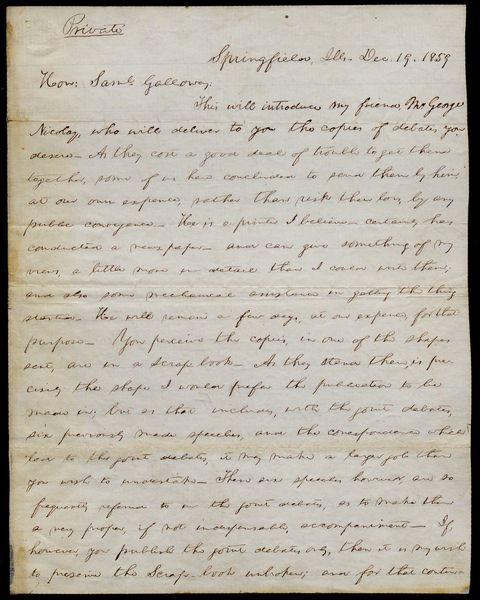 Private
Springfield, Ills. Dec. 19. 1859
Hon: Saml Galloway.
This will introduce my friend, Mr George
Nicolay, who will deliver to you the copies of debates you
desire— As they cost a good deal of trouble to get them
together, some of us has concluded to send them by him
at our own expence, rather than risk their loss by any
public conveyance— He is a printer I believe— certainly has
conducted a newspaper— and can give something of my
views, a little more in detail than I could write them;
and also some mechanical assistance in getting the thing
started— He will remain a few days, at our expence, for that
purpose— You perceive the copies, in one of the shapes
sent, are in a Scrap-book— As they stand there, is pre-
cisely the shape I would prefer the publication to be
made in; but as that includes, with the joint debates,
six previously made speeches, and the correspondence which
led to the joint debates, it may make a larger job than
you wish to undertake— Those six speeches however, are so
frequently referred to in the joint debates, as to make them
a very proper, if not indispensable, accompaniment— If,
however, you publish the joint debates only, then it is my wish
to preserve the Scrap-book unbroken; and for that contin-